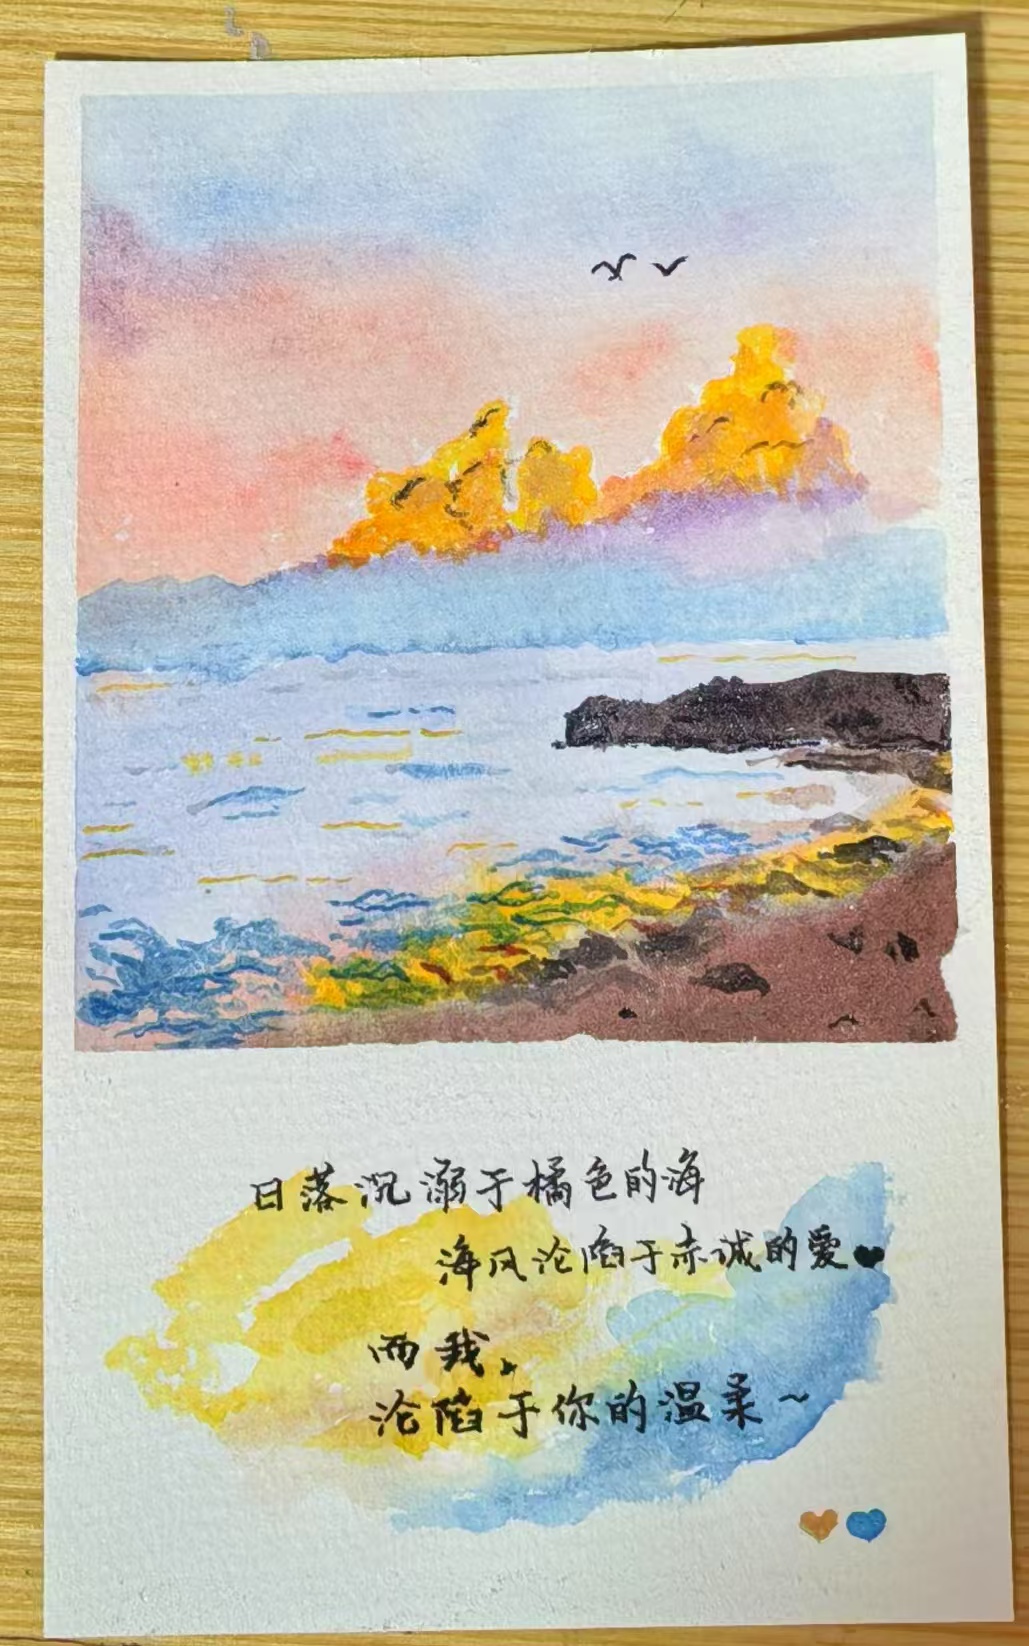 日落沉溺于橘色的海
海风沦陷于赤诚的爱
而我，
沦陷于你的温柔~